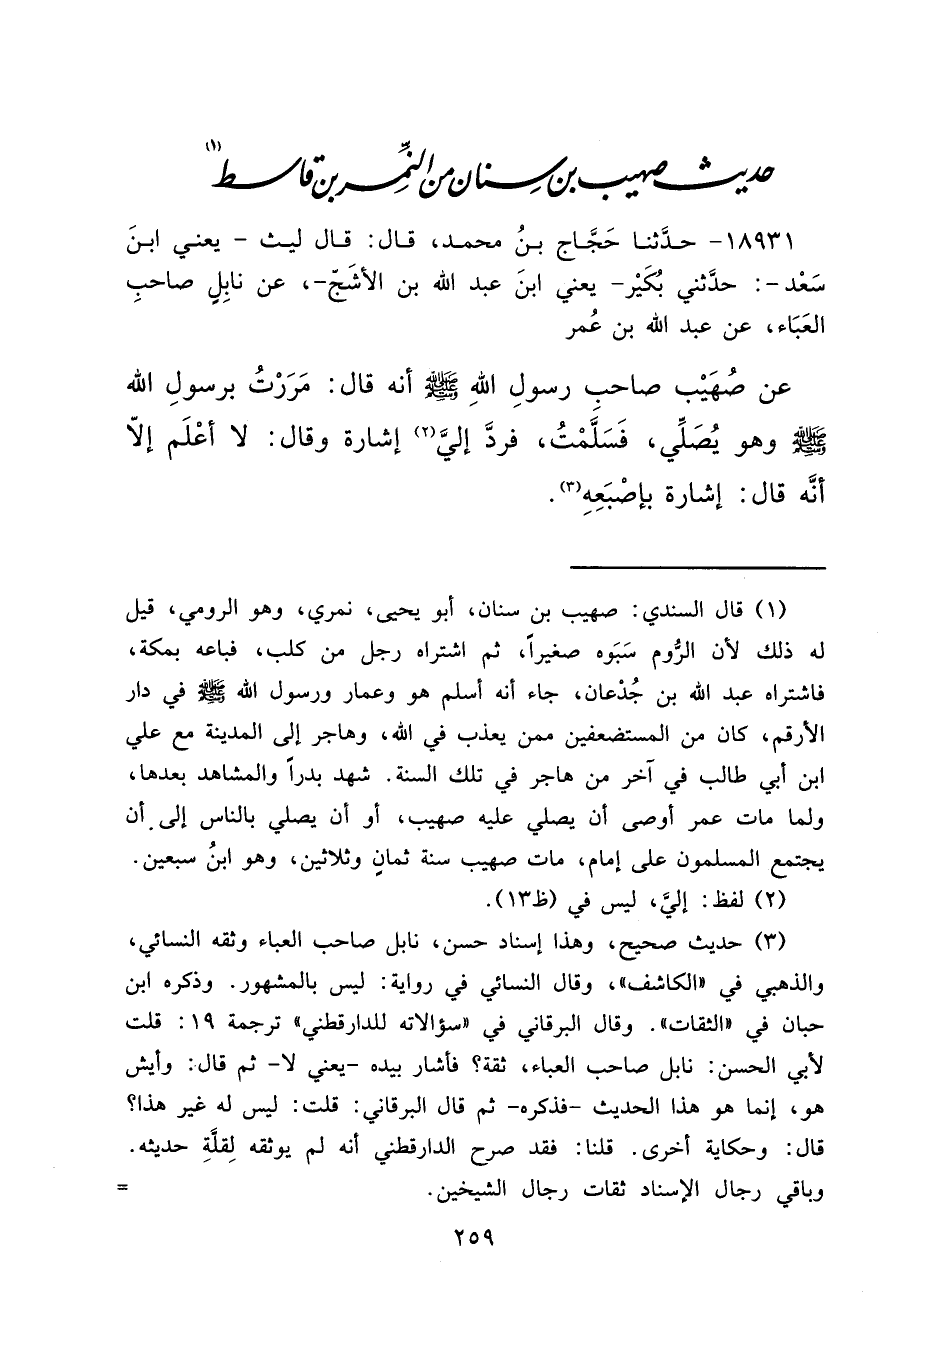 حديث صهيب بن سنان من النَّمِر بن قاسط(١)
١٨٩٣١- حدَّثنا حَجَّاج بنُ محمد، قال: قال ليث - يعني ابنَ
سَعْد-: حدَّثني بُكَيْر- يعني ابنَ عبد الله بن الأشَجّ-، عن نابِلٍ صاحبِ
العَبَاء، عن عبد الله بن عُمر
عن صُهَيْب صاحبِ رسولِ اللهِ ﷺ أنه قال: مَرَرْتُ برسولِ الله
ﷺ وهو يُصَلِّي، فَسَلَّمْتُ، فردَّ إليَّ(٢) إشارة وقال: لا أعْلَم إلاّ
أنَّه قال: إشارة بإصْبَعِهِ(٣).
(١) قال السندي: صهيب بن سنان، أبو يحيى، نمري، وهو الرومي، قيل
له ذلك لأن الرُّوم سَبَوه صغيراً، ثم اشتراه رجل من كلب، فباعه بمكة،
فاشتراه عبد الله بن جُدْعان، جاء أنه أسلم هو وعمار ورسول الله ﷺ في دار
الأرقم، كان من المستضعفين ممن يعذب في الله، وهاجر إلى المدينة مع علي
ابن أبي طالب في آخر من هاجر في تلك السنة. شهد بدراً والمشاهد بعدها،
ولما مات عمر أوصى أن يصلي عليه صهيب، أو أن يصلي بالناس إلى أن
يجتمع المسلمون على إمام، مات صهيب سنة ثمانٍ وثلاثين، وهو ابنُ سبعين.
(٢) لفظ: إليَّ، ليس في (ظ١٣).
(٣) حديث صحيح، وهذا إسناد حسن، نابل صاحب العباء وثقه النسائي،
والذهبي في «الكاشف»، وقال النسائي في رواية: ليس بالمشهور. وذكره ابن
حبان في «الثقات». وقال البرقاني في «سؤالاته للدارقطني» ترجمة ١٩: قلت
لأبي الحسن: نابل صاحب العباء، ثقة؟ فأشار بيده -يعني لا- ثم قال: وأيش
هو، إنما هو هذا الحديث -فذكره- ثم قال البرقاني: قلت: ليس له غير هذا؟
قال: وحكاية أخرى. قلنا: فقد صرح الدارقطني أنه لم يوثقه لِقلَّةِ حديثه.
وباقي رجال الإسناد ثقات رجال الشيخين. =
٢٥٩